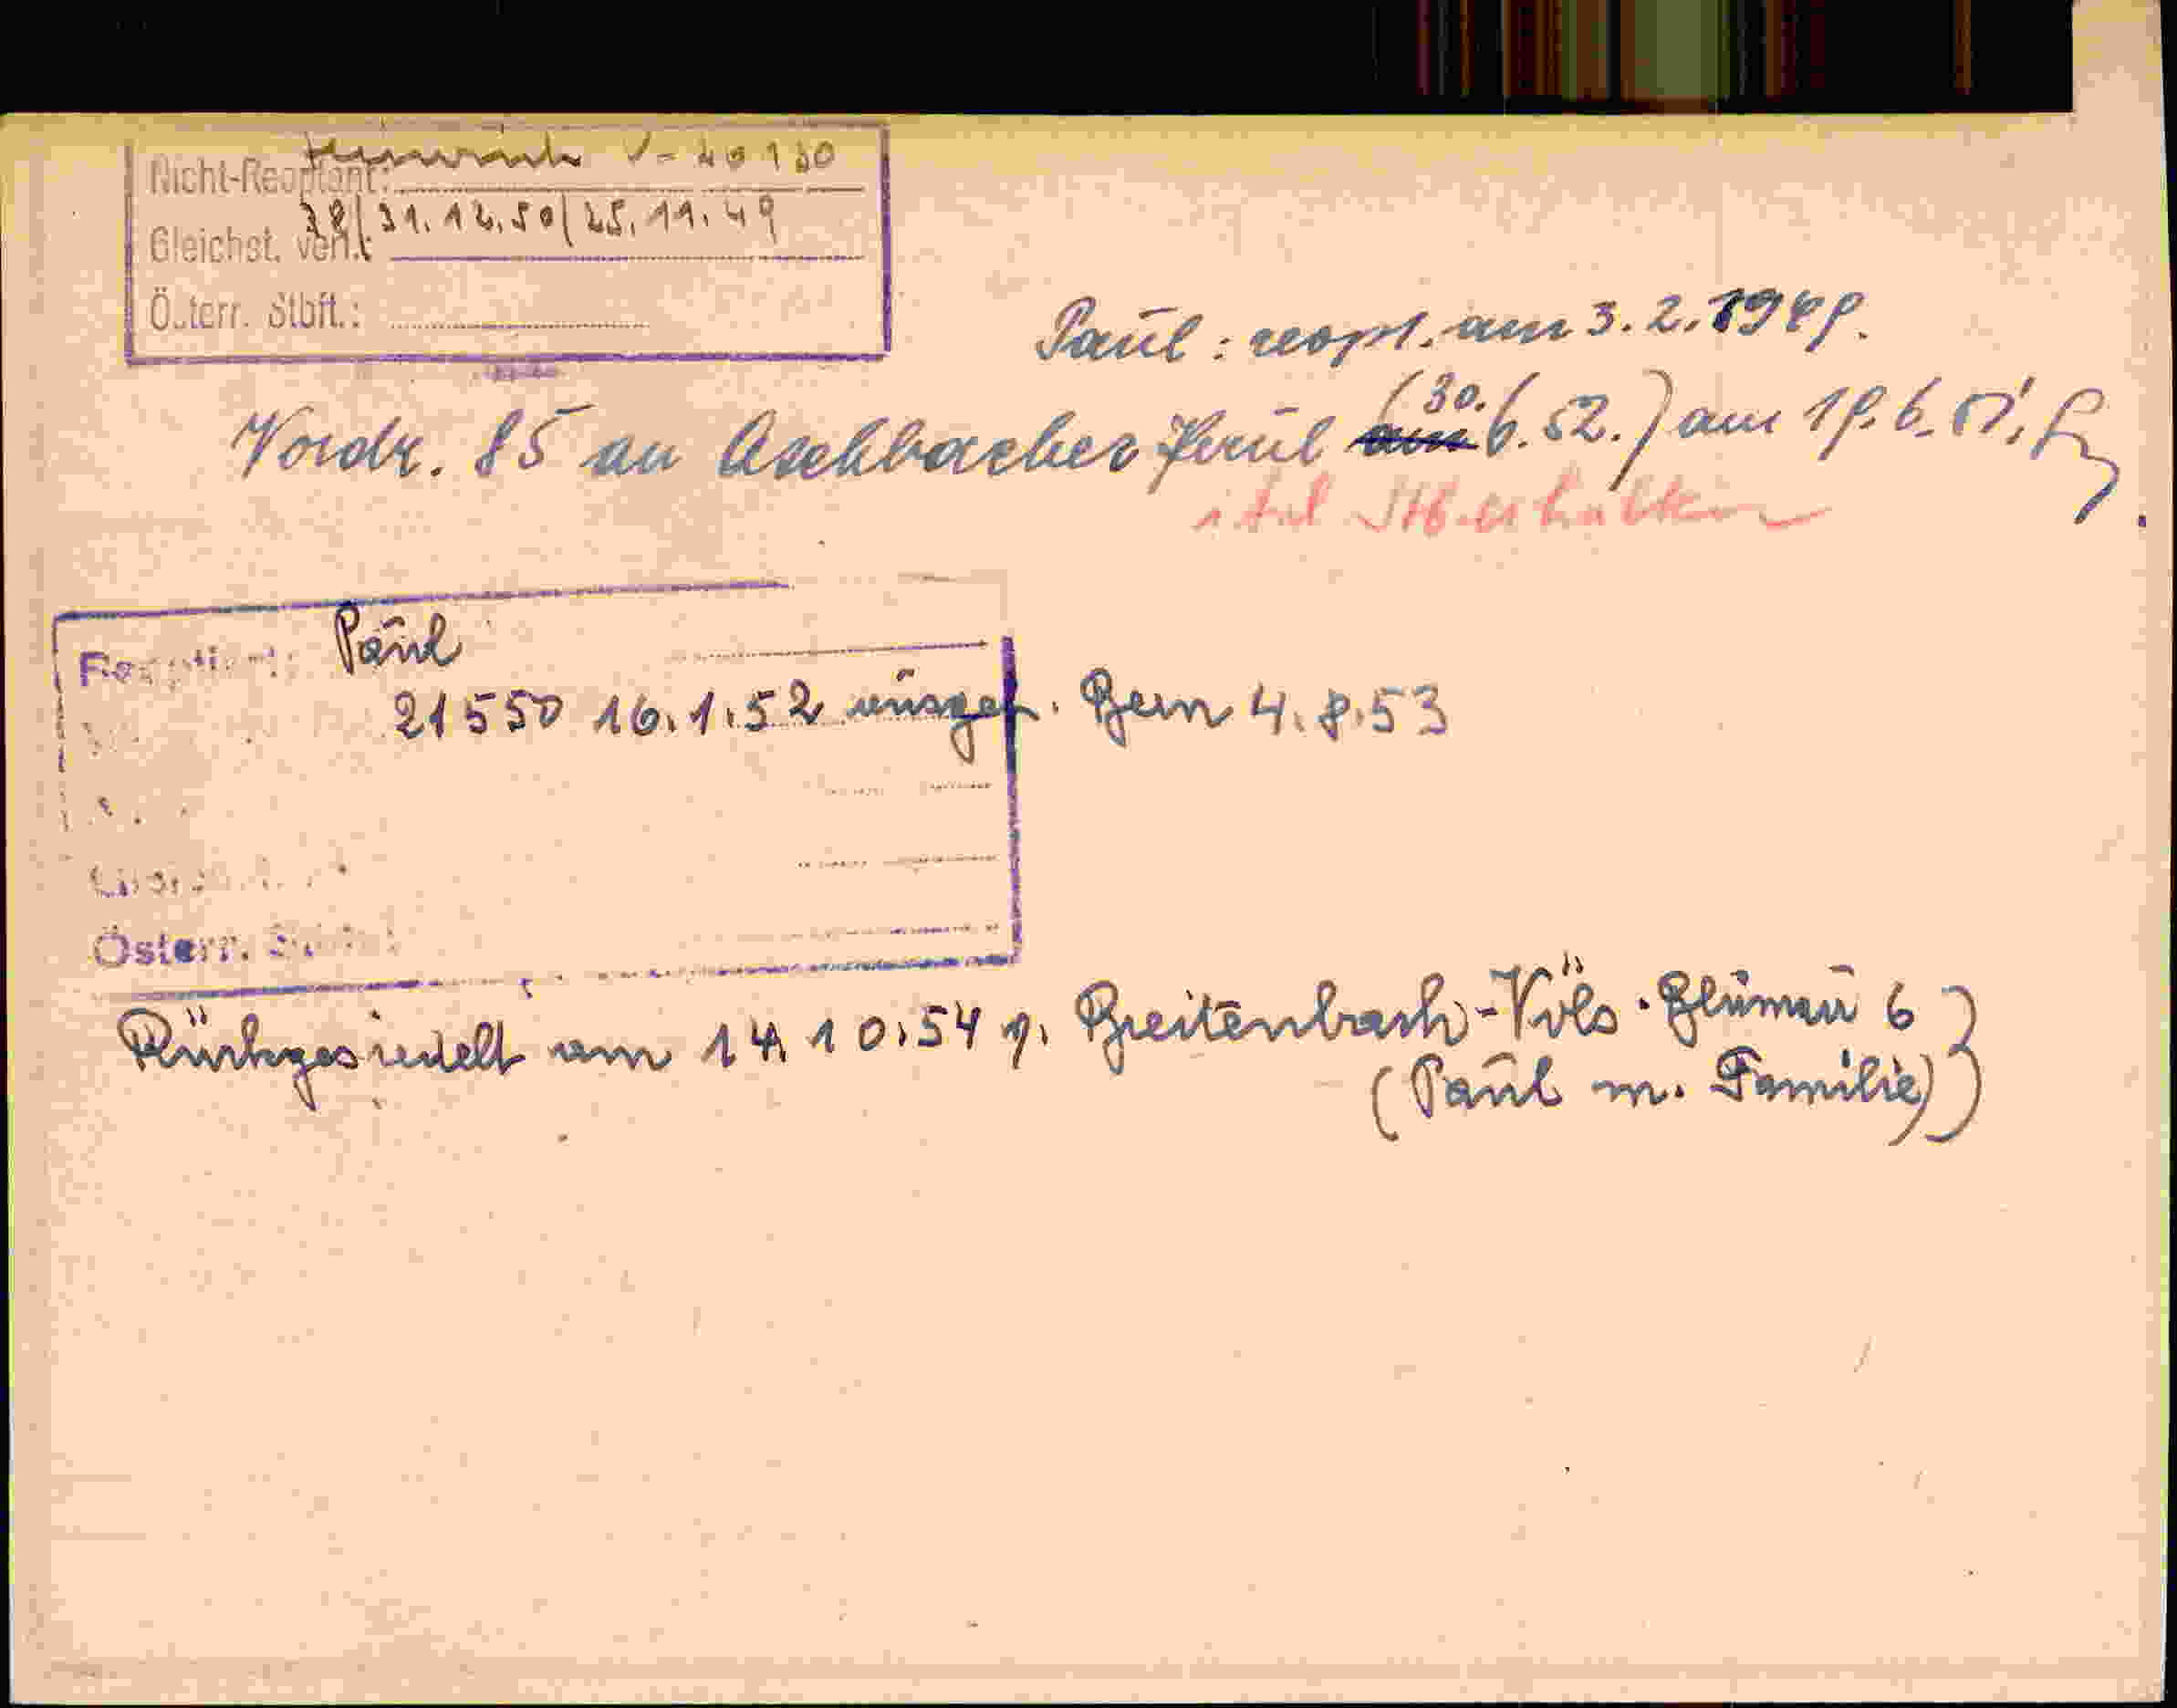 Nicht-Reoptant: Heinrich V-20130
Gleichst. verl.: 38/31.12.50/25.11.49
Österr. Stbft.:
Paul: reopt. am 3.2.1949.
Vordr. 85 an Aschbacher Paul (30.6.52.) am 19.6.51.
erhalten
Reoptant: Paul
21550 16.1.52 ausgef. Bern 4.8.53
Österr.
Rückgesiedelt am 14.10.54 n. Breitenbach-Völs-Blumau 6
(Paul m. Familie)